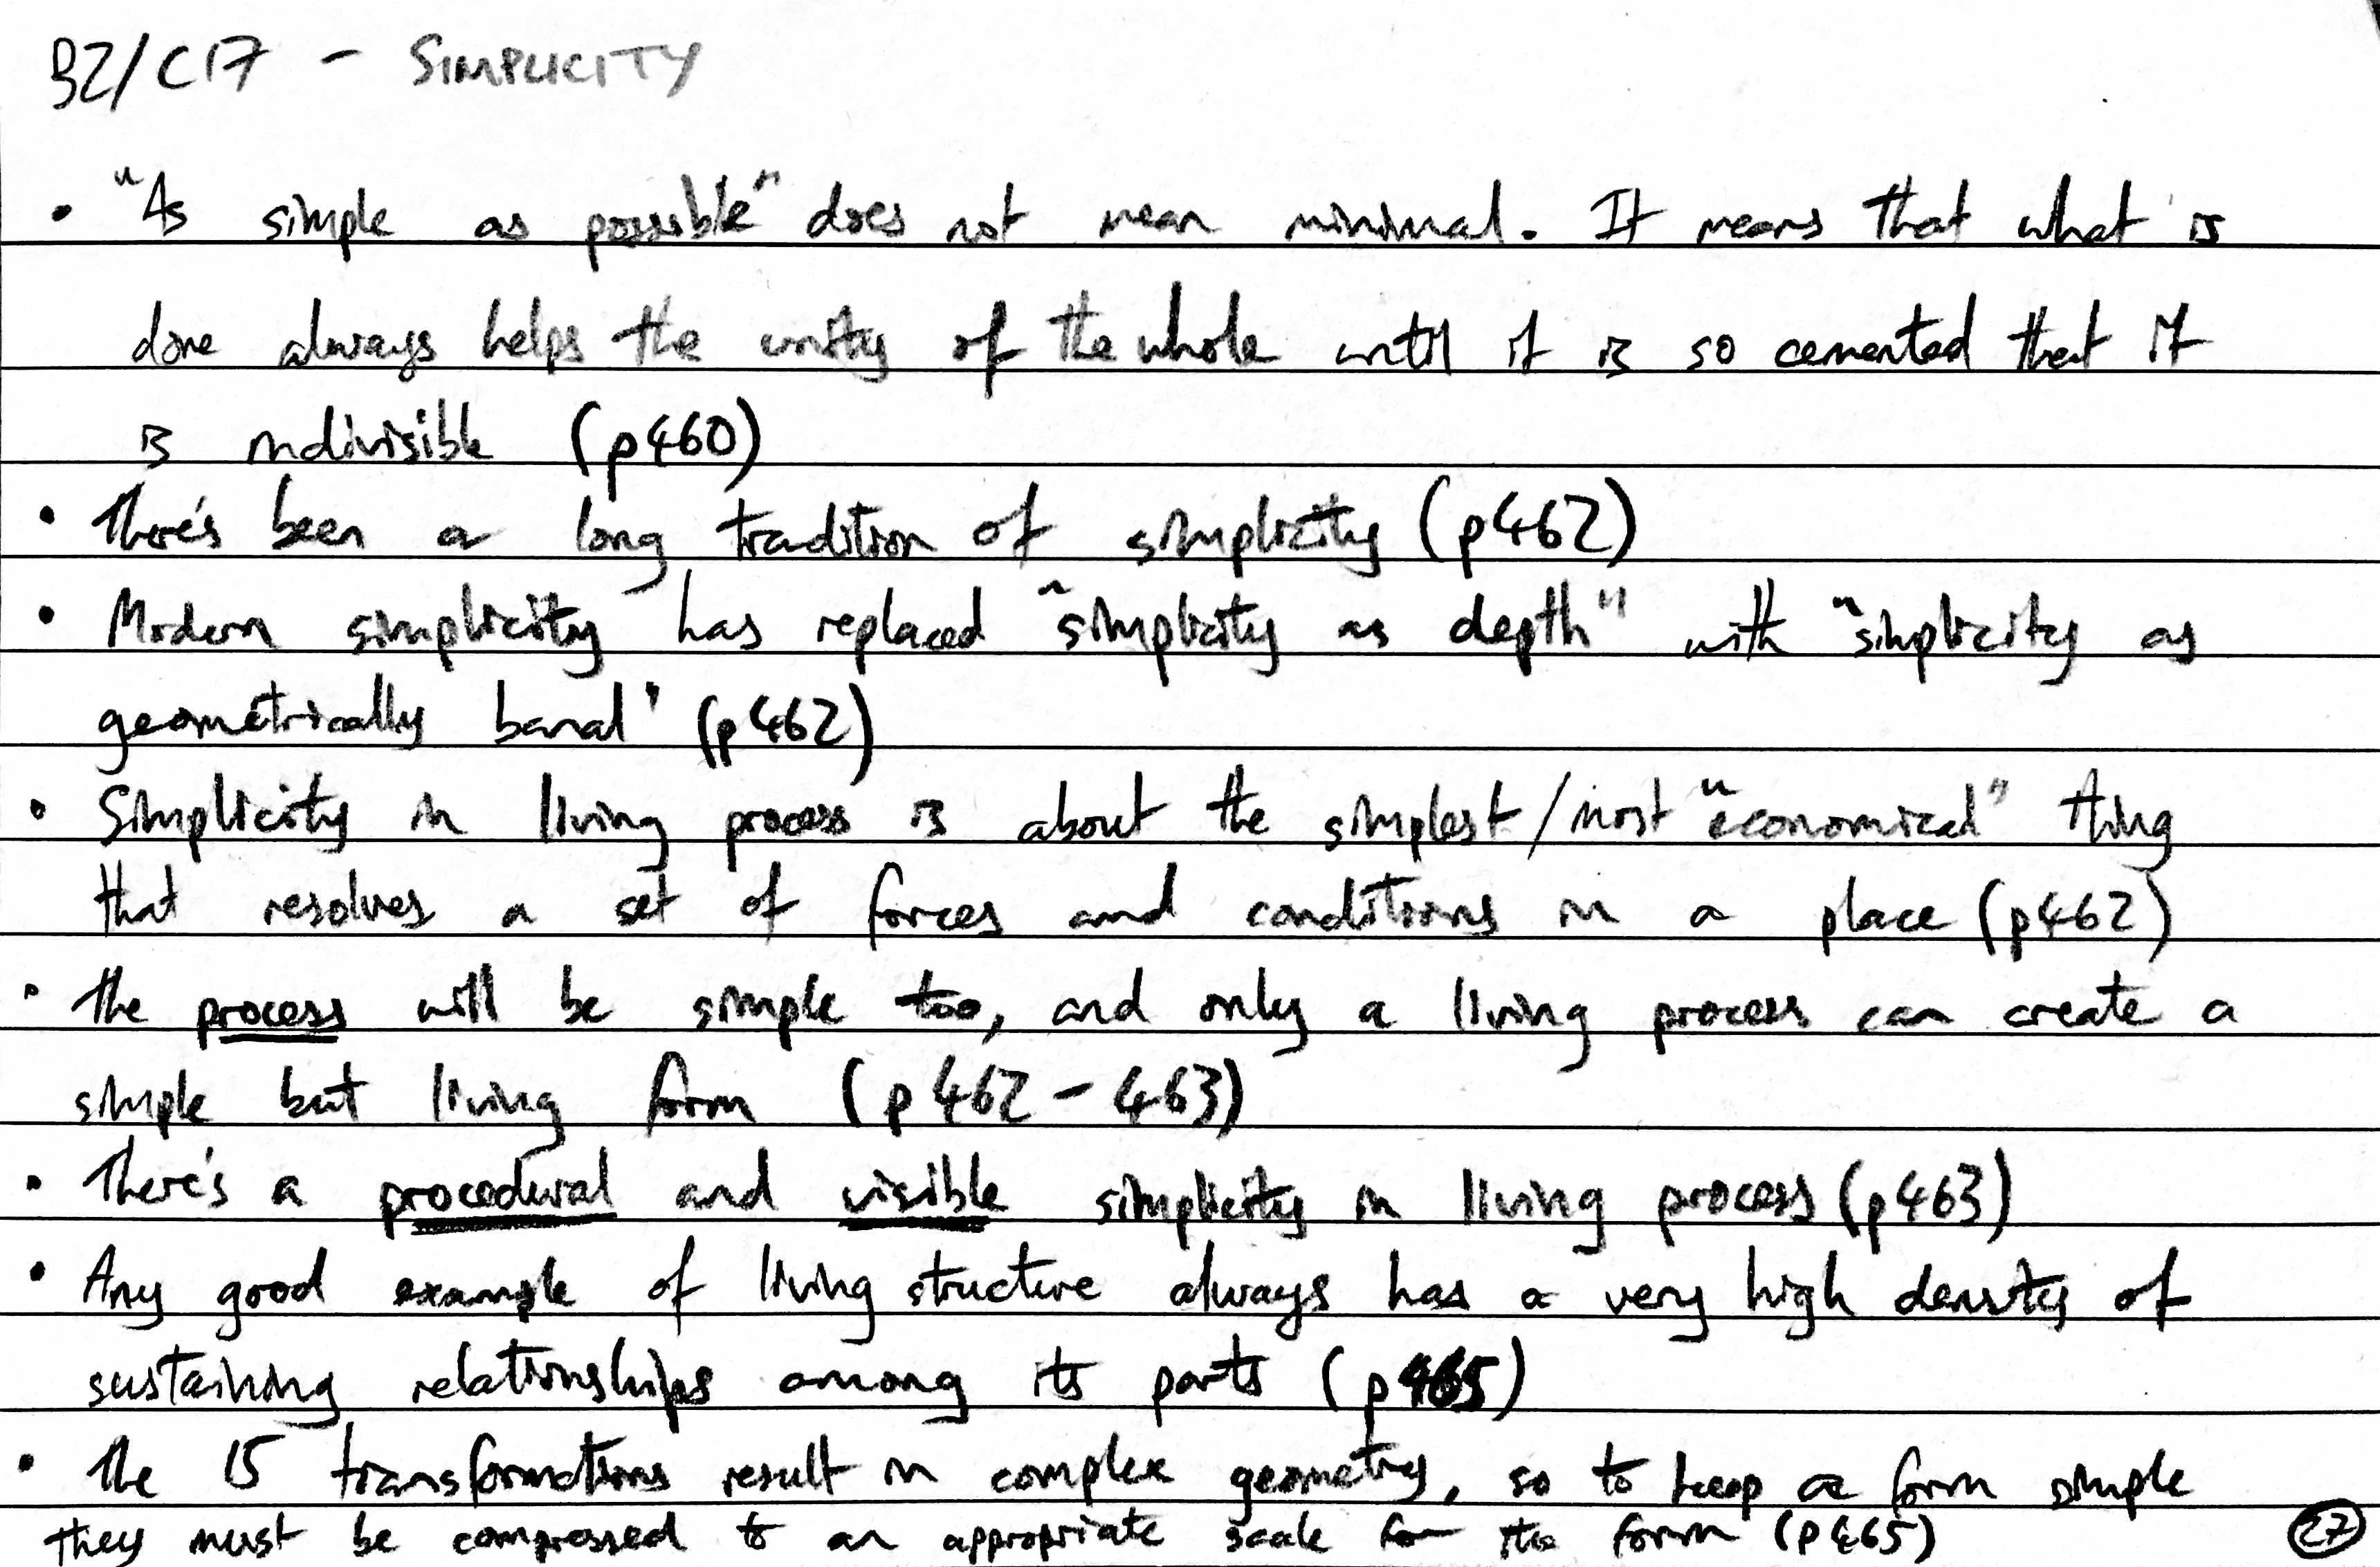 B2/C17 - SIMPLICITY
• "As simple as possible" does not mean minimal. It means that what is
done always helps the unity of the whole until it is so cemented that it
is indivisible (p460)
• There's been a long tradition of simplicity (p462)
• Modern simplicity has replaced "simplicity as depth" with "simplicity as
geometrically banal" (p462)
• Simplicity in living process is about the simplest/most "economical" thing
that resolves a set of forces and conditions in a place (p462)
• The process will be simple too, and only a living process can create a
simple but living form (p462-463)
• There's a procedural and visible simplicity in living process (p463)
• Any good example of living structure always has a very high density of
sustaining relationships among its parts (p465)
• The 15 transformations result in complex geometry, so to keep a form simple
they must be compressed to an appropriate scale for the form (p465)
27